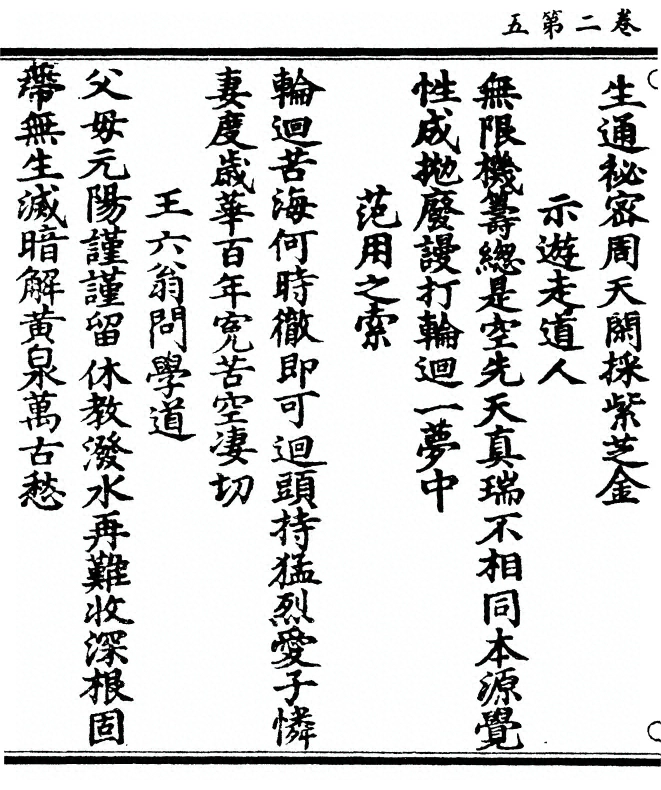 卷二第五
生通祕密周天閞採紫芝金
示遊走道人
無限機籌總是空先天真瑞不相同本源覺
性成拋廢謾打輪迴一夢中
范用之索
輪迴苦海何時徹即可迴頭持猛烈愛子憐
妻度歲華百年寃苦空淒切
王六翁問學道
父母元陽謹謹留休教潑水再難收深根固
蔕無生滅暗解黃泉萬古愁